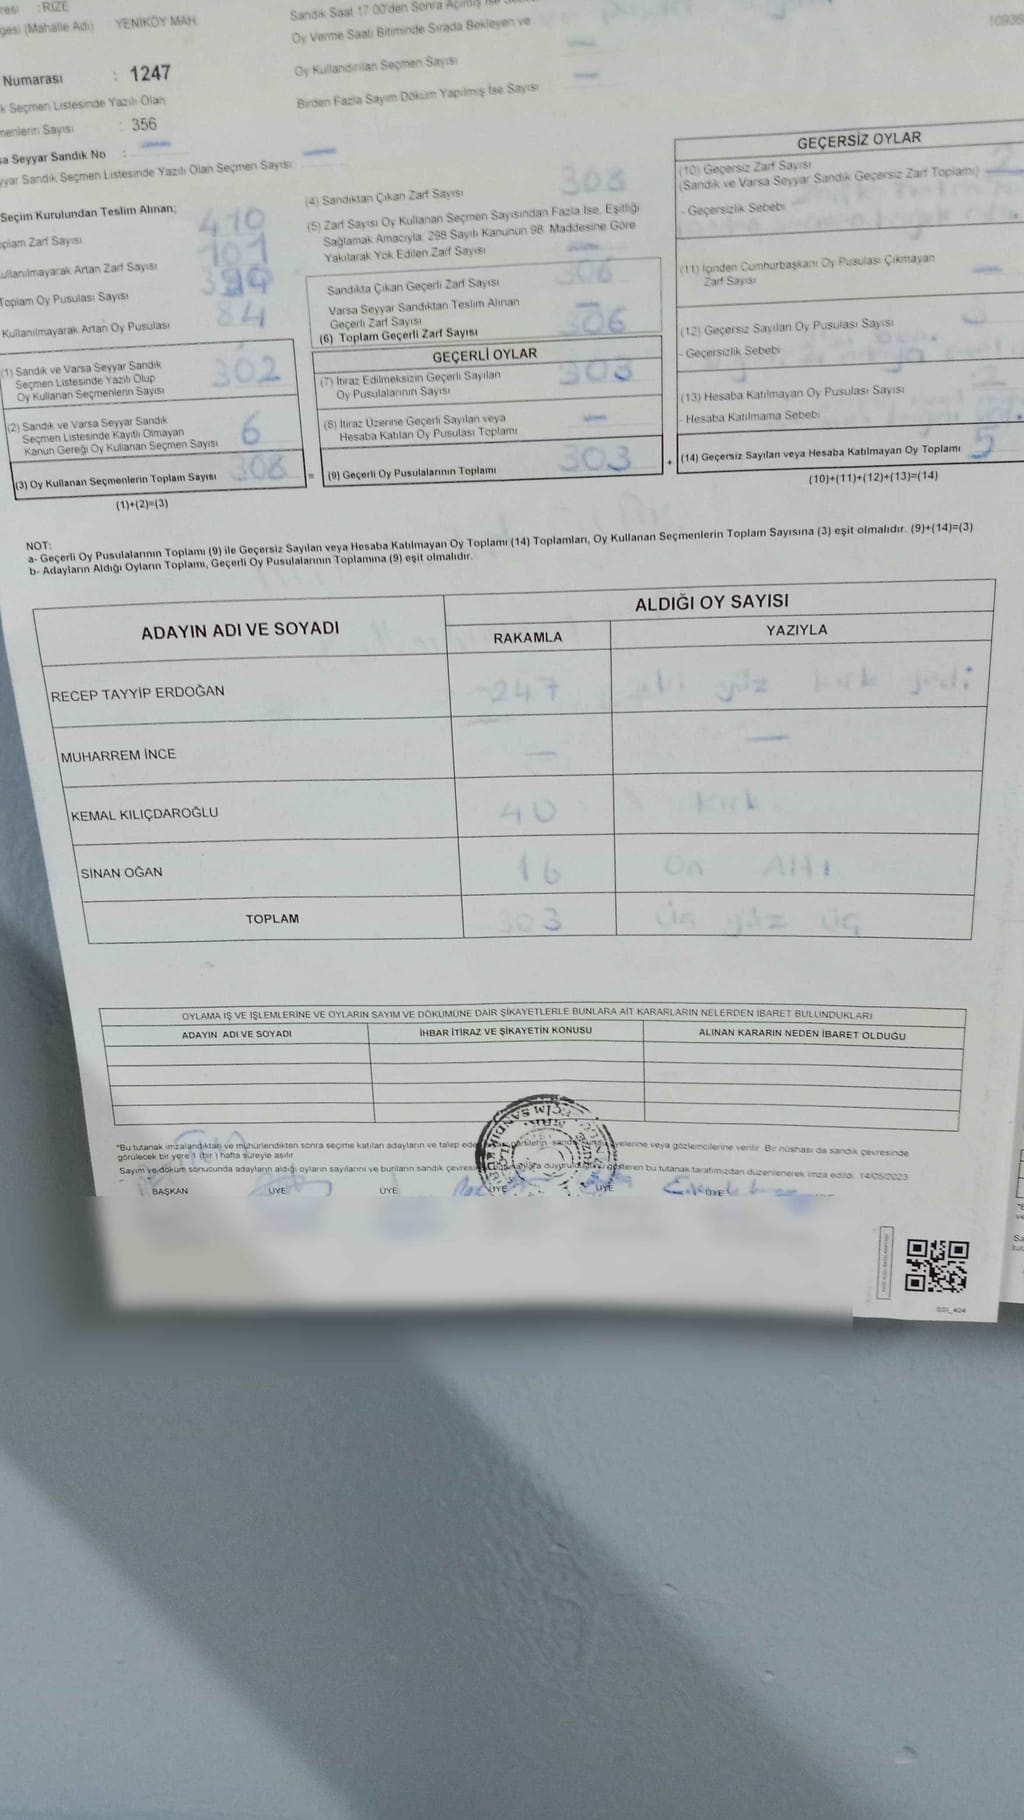 : RİZE
(Mahalle Adı) YENİKÖY MAH.
Numarası : 1247
Seçmen Listesinde Yazılı Olan
Sayısı : 356
Seyyar Sandık No : —
Sandık Seçmen Listesinde Yazılı Olan Seçmen Sayısı: —
Seçim Kurulundan Teslim Alınan;
Zarf Sayısı 410
Artan Zarf Sayısı 101
Toplam Oy Pusulası Sayısı
Kullanılmayarak Artan Oy Pusulası 84
(1) Sandık ve Varsa Seyyar Sandık
Seçmen Listesinde Yazılı Olup
Oy Kullanan Seçmenlerin Sayısı 302
(2) Sandık ve Varsa Seyyar Sandık
Seçmen Listesinde Kayıtlı Olmayan
Kanun Gereği Oy Kullanan Seçmen Sayısı 6
(3) Oy Kullanan Seçmenlerin Toplam Sayısı 308
(1)+(2)=(3)
Sandık Saat 17:00'den Sonra
Oy Verme Saati Bitiminde Sırada Bekleyen ve
Oy Kullandırılan Seçmen Sayısı —
Birden Fazla Sayım Döküm Yapılmış İse Sayısı —
(4) Sandıktan Çıkan Zarf Sayısı 308
(5) Zarf Sayısı Oy Kullanan Seçmen Sayısından Fazla İse, Eşitliği
Sağlamak Amacıyla, 298 Sayılı Kanunun 98. Maddesine Göre
Yakılarak Yok Edilen Zarf Sayısı —
Sandıkta Çıkan Geçerli Zarf Sayısı 306
Varsa Seyyar Sandıktan Teslim Alınan
Geçerli Zarf Sayısı —
(6) Toplam Geçerli Zarf Sayısı 306
GEÇERLİ OYLAR
(7) İtiraz Edilmeksizin Geçerli Sayılan
Oy Pusulalarının Sayısı 303
(8) İtiraz Üzerine Geçerli Sayılan veya
Hesaba Katılan Oy Pusulası Toplamı —
= (9) Geçerli Oy Pusulalarının Toplamı 303
GEÇERSİZ OYLAR
(10) Geçersiz Zarf Sayısı
(Sandık ve Varsa Seyyar Sandık Geçersiz Zarf Toplamı) 2
- Geçersizlik Sebebi
(11) İçinden Cumhurbaşkanı Oy Pusulası Çıkmayan
Zarf Sayısı —
(12) Geçersiz Sayılan Oy Pusulası Sayısı
- Geçersizlik Sebebi
(13) Hesaba Katılmayan Oy Pusulası Sayısı
- Hesaba Katılmama Sebebi
+ (14) Geçersiz Sayılan veya Hesaba Katılmayan Oy Toplamı 5
(10)+(11)+(12)+(13)=(14)
NOT:
a- Geçerli Oy Pusulalarının Toplamı (9) ile Geçersiz Sayılan veya Hesaba Katılmayan Oy Toplamı (14) Toplamları, Oy Kullanan Seçmenlerin Toplam Sayısına (3) eşit olmalıdır. (9)+(14)=(3)
b- Adayların Aldığı Oyların Toplamı, Geçerli Oy Pusulalarının Toplamına (9) eşit olmalıdır.
ADAYIN ADI VE SOYADI ALDIĞI OY SAYISI
RAKAMLA YAZIYLA
RECEP TAYYİP ERDOĞAN 247 iki yüz kırk yedi
MUHARREM İNCE — —
KEMAL KILIÇDAROĞLU 40 Kırk
SİNAN OĞAN 16 On Altı
TOPLAM 303 Üç yüz üç
OYLAMA İŞ VE İŞLEMLERİNE VE OYLARIN SAYIM VE DÖKÜMÜNE DAİR ŞİKAYETLERLE BUNLARA AİT KARARLARIN NELERDEN İBARET BULUNDUKLARI
ADAYIN ADI VE SOYADI İHBAR İTİRAZ VE ŞİKAYETİN KONUSU ALINAN KARARIN NEDEN İBARET OLDUĞU
*Bu tutanak imzalandıktan ve mühürlendikten sonra seçime katılan adayların ve talep üyelerine veya gözlemcilerine verilir. Bir nüshası da sandık çevresinde
görülecek bir yere 1 (bir) hafta süreyle asılır.
Sayım ve döküm sonucunda adayların aldığı oyların sayılarını ve bunların sandık gösteren bu tutanak tarafımızdan düzenlenerek imza edildi. 14/05/2023
BAŞKAN ÜYE ÜYE ÜYE ÜYE ÜYE
SSI_404